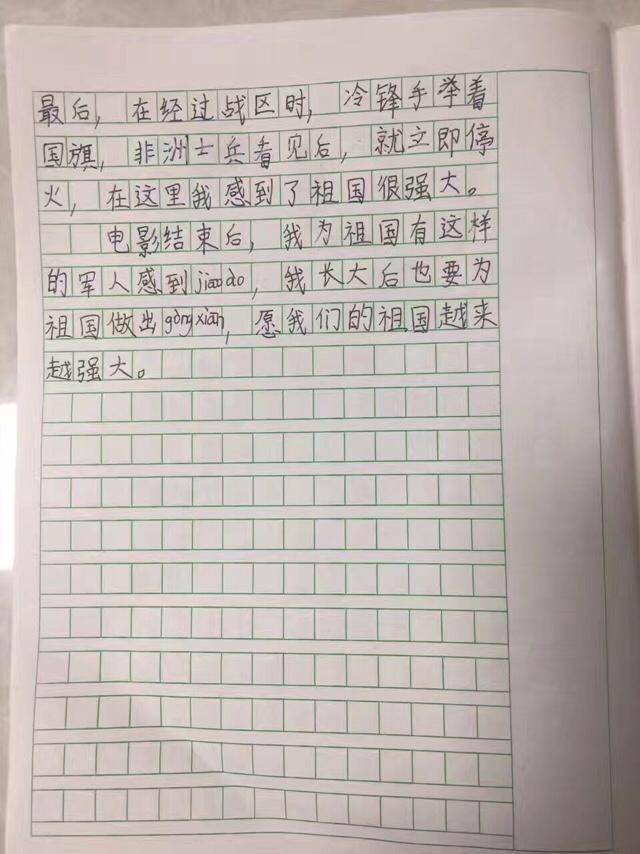 最后，在经过战区时，冷锋手举着
国旗，非洲士兵看见后，就立即停
火，在这里我感到了祖国很强大。
电影结束后，我为祖国有这样
的军人感到jiaoào，我长大后也要为
祖国做出gòngxiàn，愿我们的祖国越来
越强大。